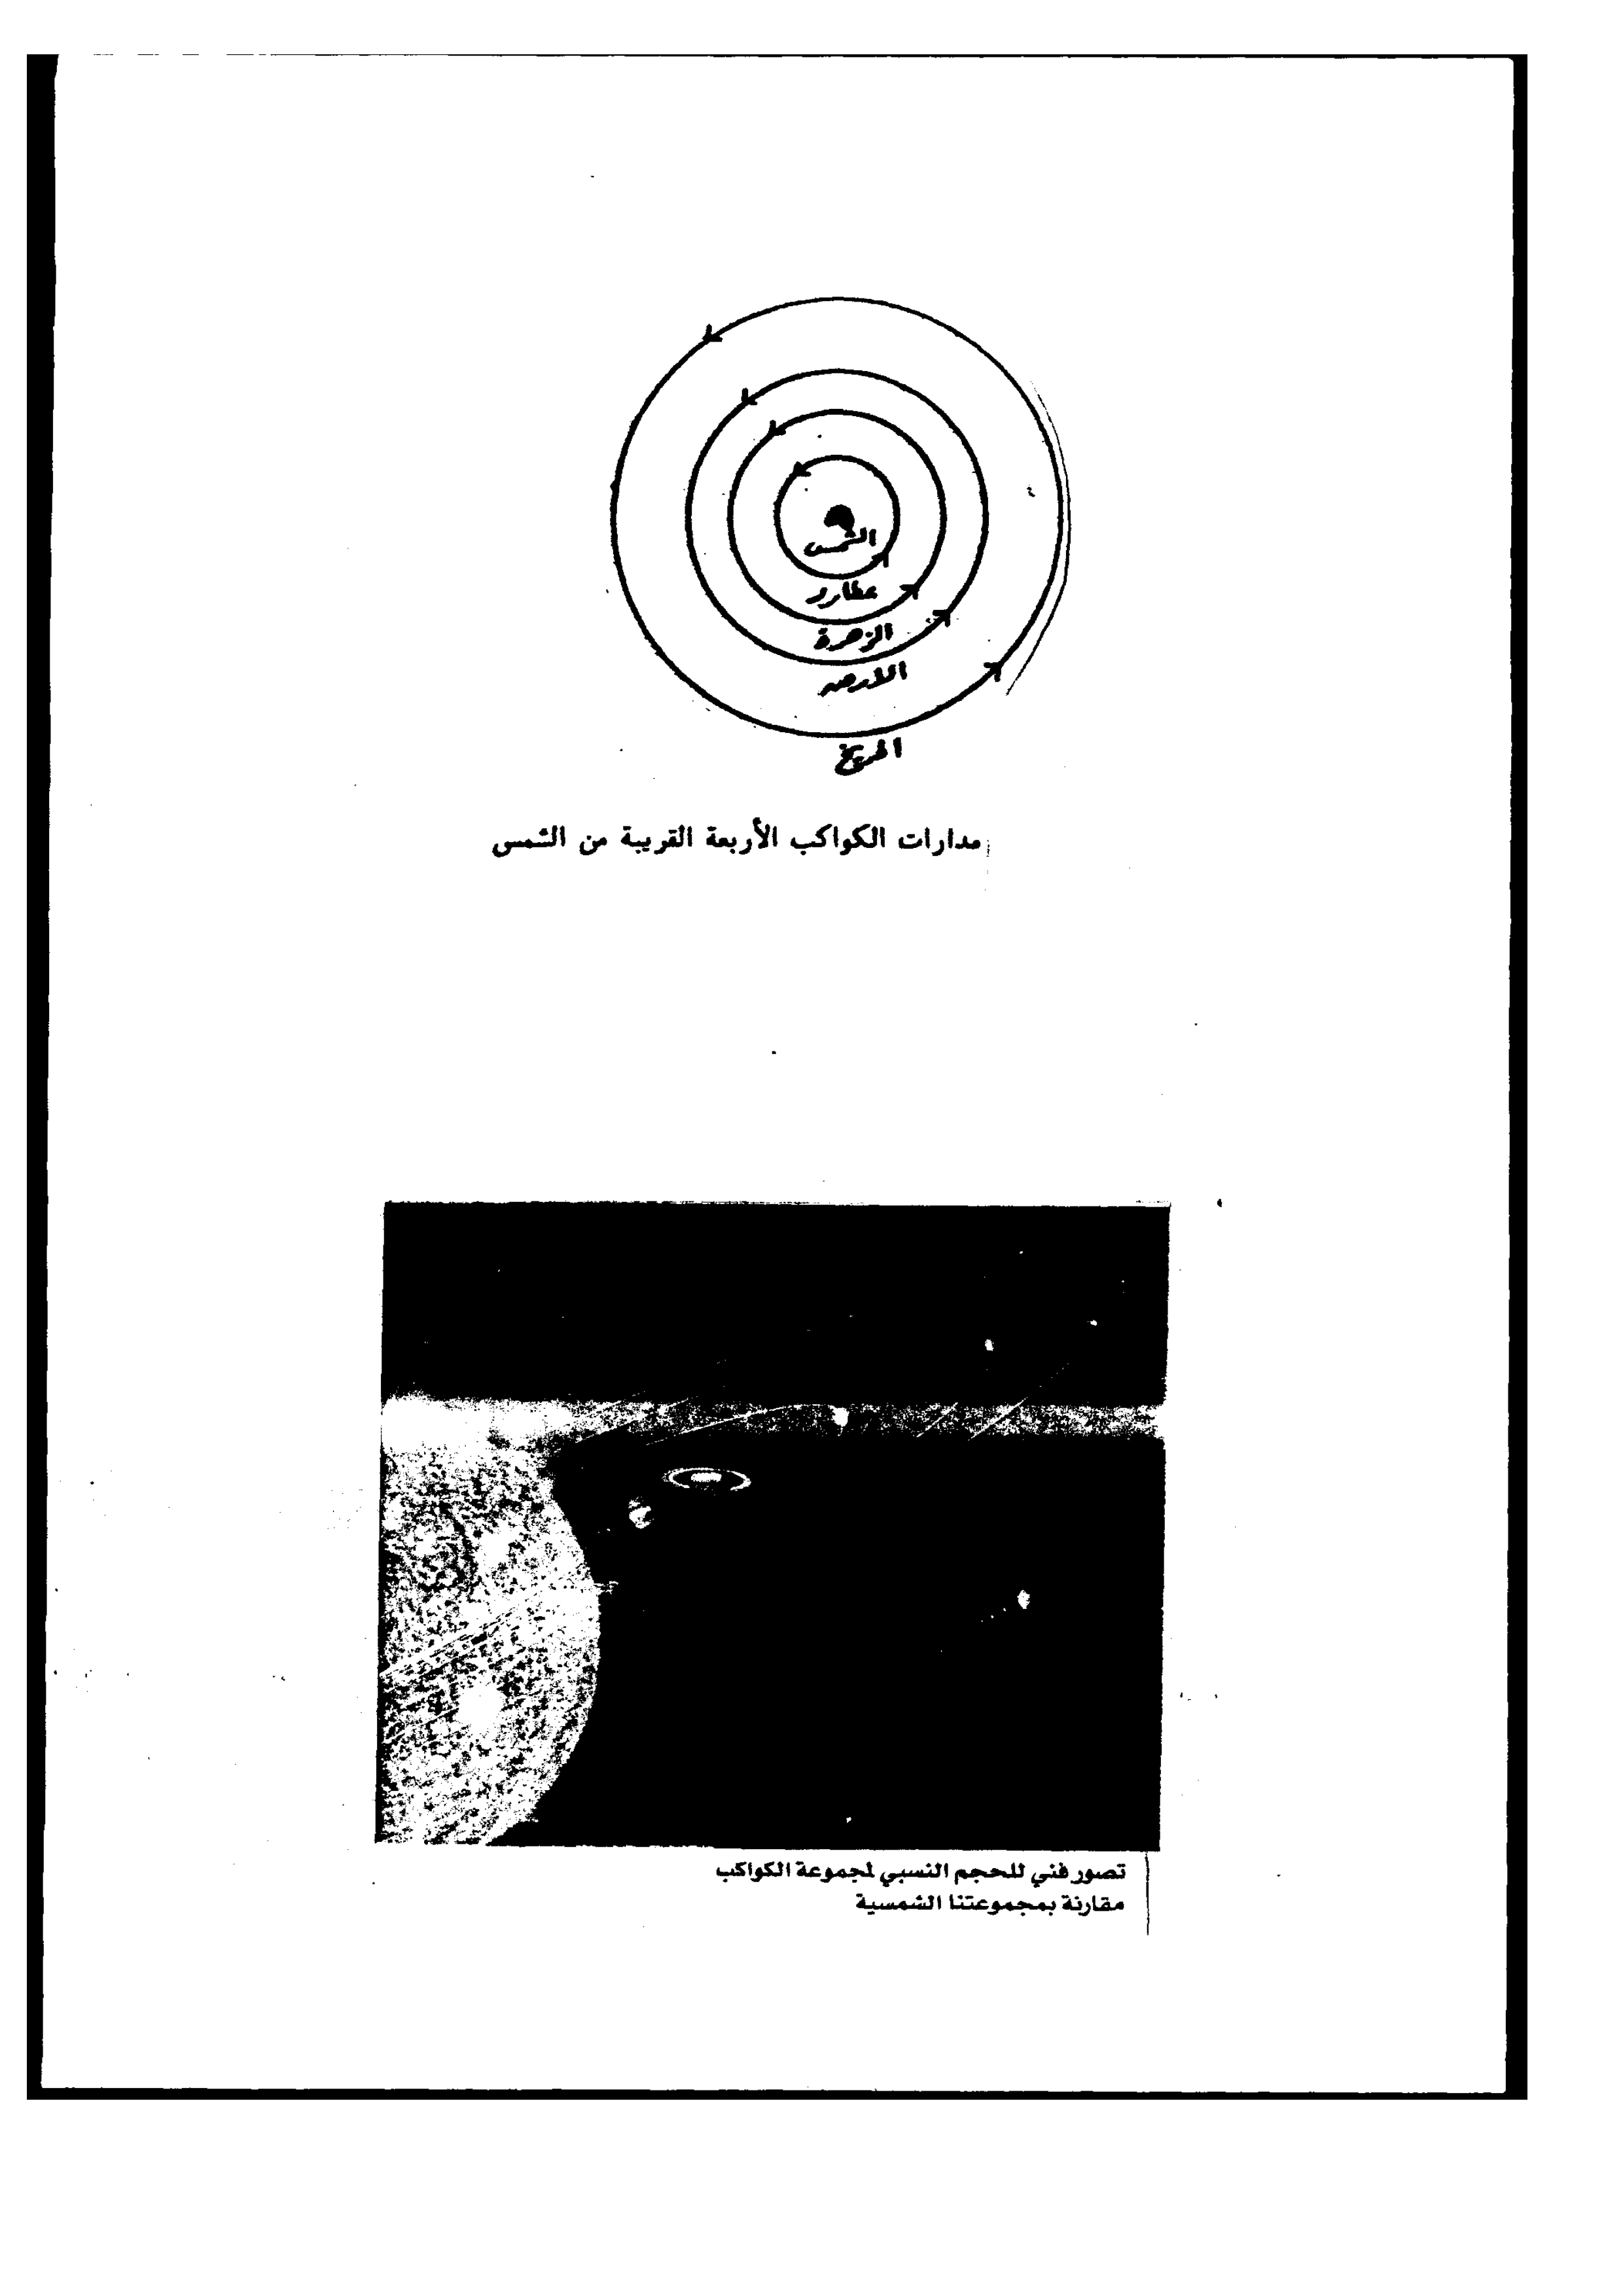 الشمس
عطارد
الزهرة
الارض
المريخ
مدارات الكواكب الأربعة القريبة من الشمس
تصور فني للحجم النسبي لمجموعة الكواكب
مقارنة بمجموعتنا الشمسية